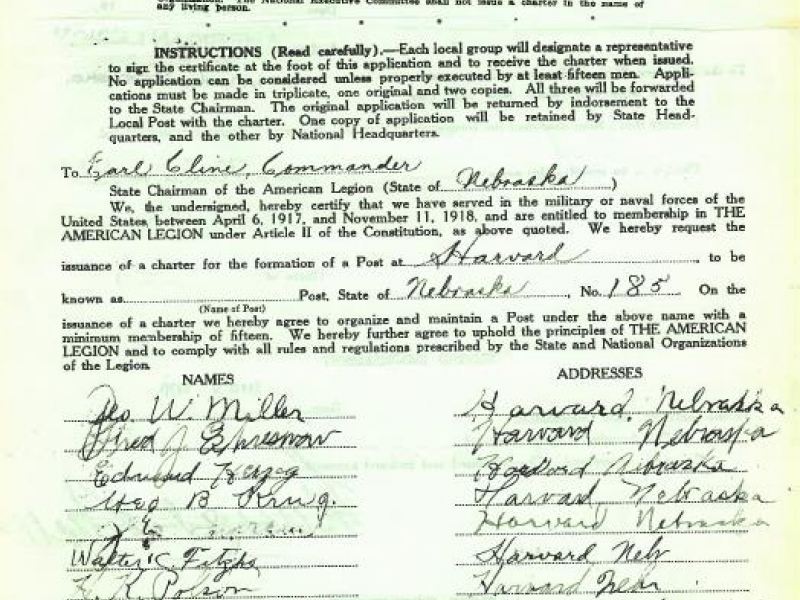 any living person.
INSTRUCTIONS (Read carefully).—Each local group will designate a representative
to sign the certificate at the foot of this application and to receive the charter when issued.
No application can be considered unless properly executed by at least fifteen men. Appli-
cations must be made in triplicate, one original and two copies. All three will be forwarded
to the State Chairman. The original application will be returned by indorsement to the
Local Post with the charter. One copy of application will be retained by State Head-
quarters, and the other by National Headquarters.
To Earl Cline, Commander
State Chairman of the American Legion (State of Nebraska)
We, the undersigned, hereby certify that we have served in the military or naval forces of the
United States, between April 6, 1917, and November 11, 1918, and are entitled to membership in THE
AMERICAN LEGION under Article II of the Constitution, as above quoted. We hereby request the
issuance of a charter for the formation of a Post at Harvard, to be
known as Post, State of Nebraska, No. 185 On the
(Name of Post)
issuance of a charter we hereby agree to organize and maintain a Post under the above name with a
minimum membership of fifteen. We hereby further agree to uphold the principles of THE AMERICAN
LEGION and to comply with all rules and regulations prescribed by the State and National Organizations
of the Legion.
NAMES ADDRESSES
Geo. W. Miller Harvard, Nebraska
Fred J. Harvard Nebraska
Edmund Herzog Nebraska
Geo B Krug. Harvard, Nebraska
Harvard Nebraska
Walter K. Harvard Nebr
K. Polson Harvard Nebr